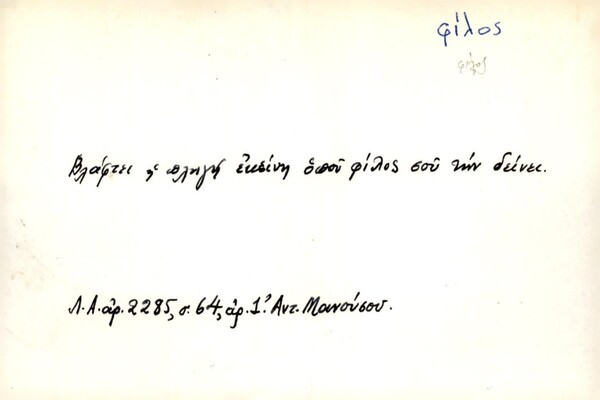 φίλος
φίλος
Βλάφτει ἡ πληγή ἐκείνη ὁποῦ φίλος σοῦ τήν δείνει.
Λ.Α. ἀρ. 2285, σ. 64, ἀρ. 1. Ἀντ. Μανούσου.